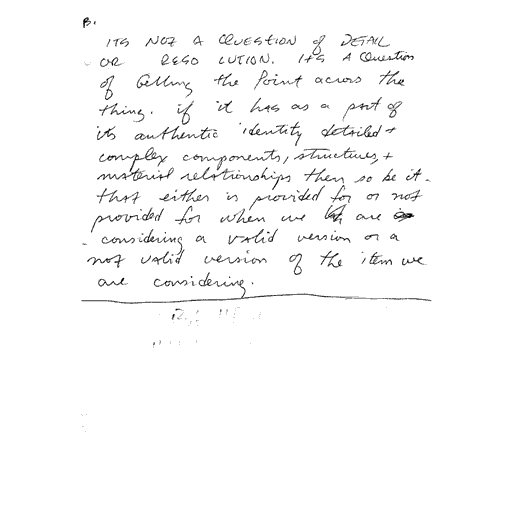 B.
ITS NOT A QUESTION of DETAIL
OR RESO LUTION. ITS A Question
of Getting the Point across the
thing. if it has as a part of
its authentic identity detailed +
complex components, structures, +
material relationships then so be it -
that either is provided for or not
provided for when we are
considering a valid version or a
not valid version of the item we
are considering.